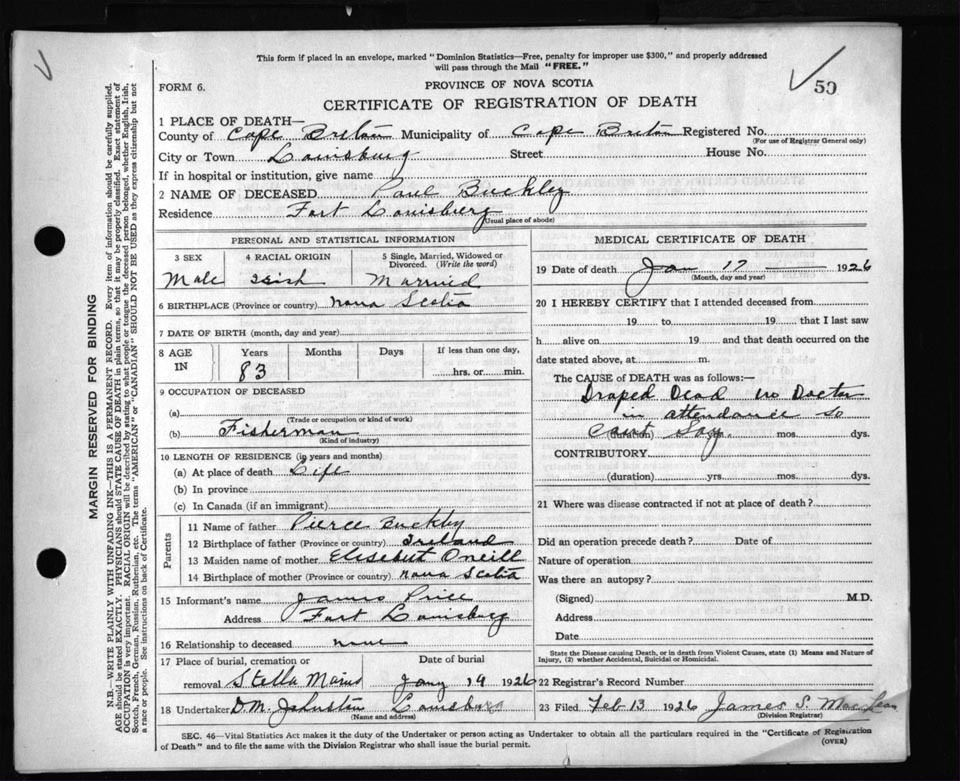 This form if placed in an envelope, marked "Dominion Statistics—Free, penalty for improper use $300," and properly addressed
will pass through the Mail "FREE."
50
FORM 6.
PROVINCE OF NOVA SCOTIA
CERTIFICATE OF REGISTRATION OF DEATH
1 PLACE OF DEATH—
County of Cape Breton Municipality of Cape Breton Registered No.
(For use of Registrar General only)
City or Town Louisburg Street House No.
If in hospital or institution, give name
2 NAME OF DECEASED Paul Buckley
Residence Fort Louisberg
(Usual place of abode)
PERSONAL AND STATISTICAL INFORMATION
3 SEX 4 RACIAL ORIGIN 5 Single, Married, Widowed or
Divorced. (Write the word)
Male Irish Married
6 BIRTHPLACE (Province or country) Nova Scotia
7 DATE OF BIRTH (month, day and year)
8 AGE IN Years Months Days If less than one day,
83 hrs. or min.
9 OCCUPATION OF DECEASED
(a)
(Trade or occupation or kind of work)
(b) Fisherman
(Kind of industry)
10 LENGTH OF RESIDENCE (in years and months)
(a) At place of death Life
(b) In province
(c) In Canada (if an immigrant)
Parents
11 Name of father Pierce Buckley
12 Birthplace of father (Province or country) Ireland
13 Maiden name of mother Elisebut Oneill
14 Birthplace of mother (Province or country) Nova Scotia
15 Informant's name James Price
Address Fort Louisberg
16 Relationship to deceased none
17 Place of burial, cremation or Date of burial
removal Stella Maris Jany 19 1926
18 Undertaker D.M. Johnston Louisburg
(Name and address)
MEDICAL CERTIFICATE OF DEATH
19 Date of death Jan 17 1926
(Month, day and year)
20 I HEREBY CERTIFY that I attended deceased from
19 to 19 that I last saw
h alive on 19 and that death occurred on the
date stated above, at m.
The CAUSE of DEATH was as follows:—
Draped Dead no Doctor
in attendance so
Caint Say.
(duration) mos. dys.
CONTRIBUTORY
(duration) yrs. mos. dys.
21 Where was disease contracted if not at place of death?
Did an operation precede death? Date of
Nature of operation
Was there an autopsy?
(Signed) M.D.
Address
Date
State the Disease causing Death, or in death from Violent Causes, state (1) Means and Nature of
Injury, (2) whether Accidental, Suicidal or Homicidal.
22 Registrar's Record Number
23 Filed Feb 13 1926 James S. MacLean
(Division Registrar)
SEC. 46—Vital Statistics Act makes it the duty of the Undertaker or person acting as Undertaker to obtain all the particulars required in the "Certificate of Registration
of Death" and to file the same with the Division Registrar who shall issue the burial permit.
(OVER)
MARGIN RESERVED FOR BINDING
N.B.—WRITE PLAINLY WITH UNFADING INK—THIS IS A PERMANENT RECORD. Every item of information should be carefully supplied.
AGE should be stated EXACTLY. PHYSICIANS should STATE CAUSE OF DEATH in plain terms, so that it may be properly classified. Exact statement of
OCCUPATION is very important. RACIAL ORIGIN will be described by stating to what people or tongue the deceased person belonged, whether English, Irish,
Scotch, French, German, Russian, Ruthenian, etc. The terms "AMERICAN" or "CANADIAN" SHOULD NOT BE USED as they express citizenship but not
a race or people. See instructions on back of Certificate.